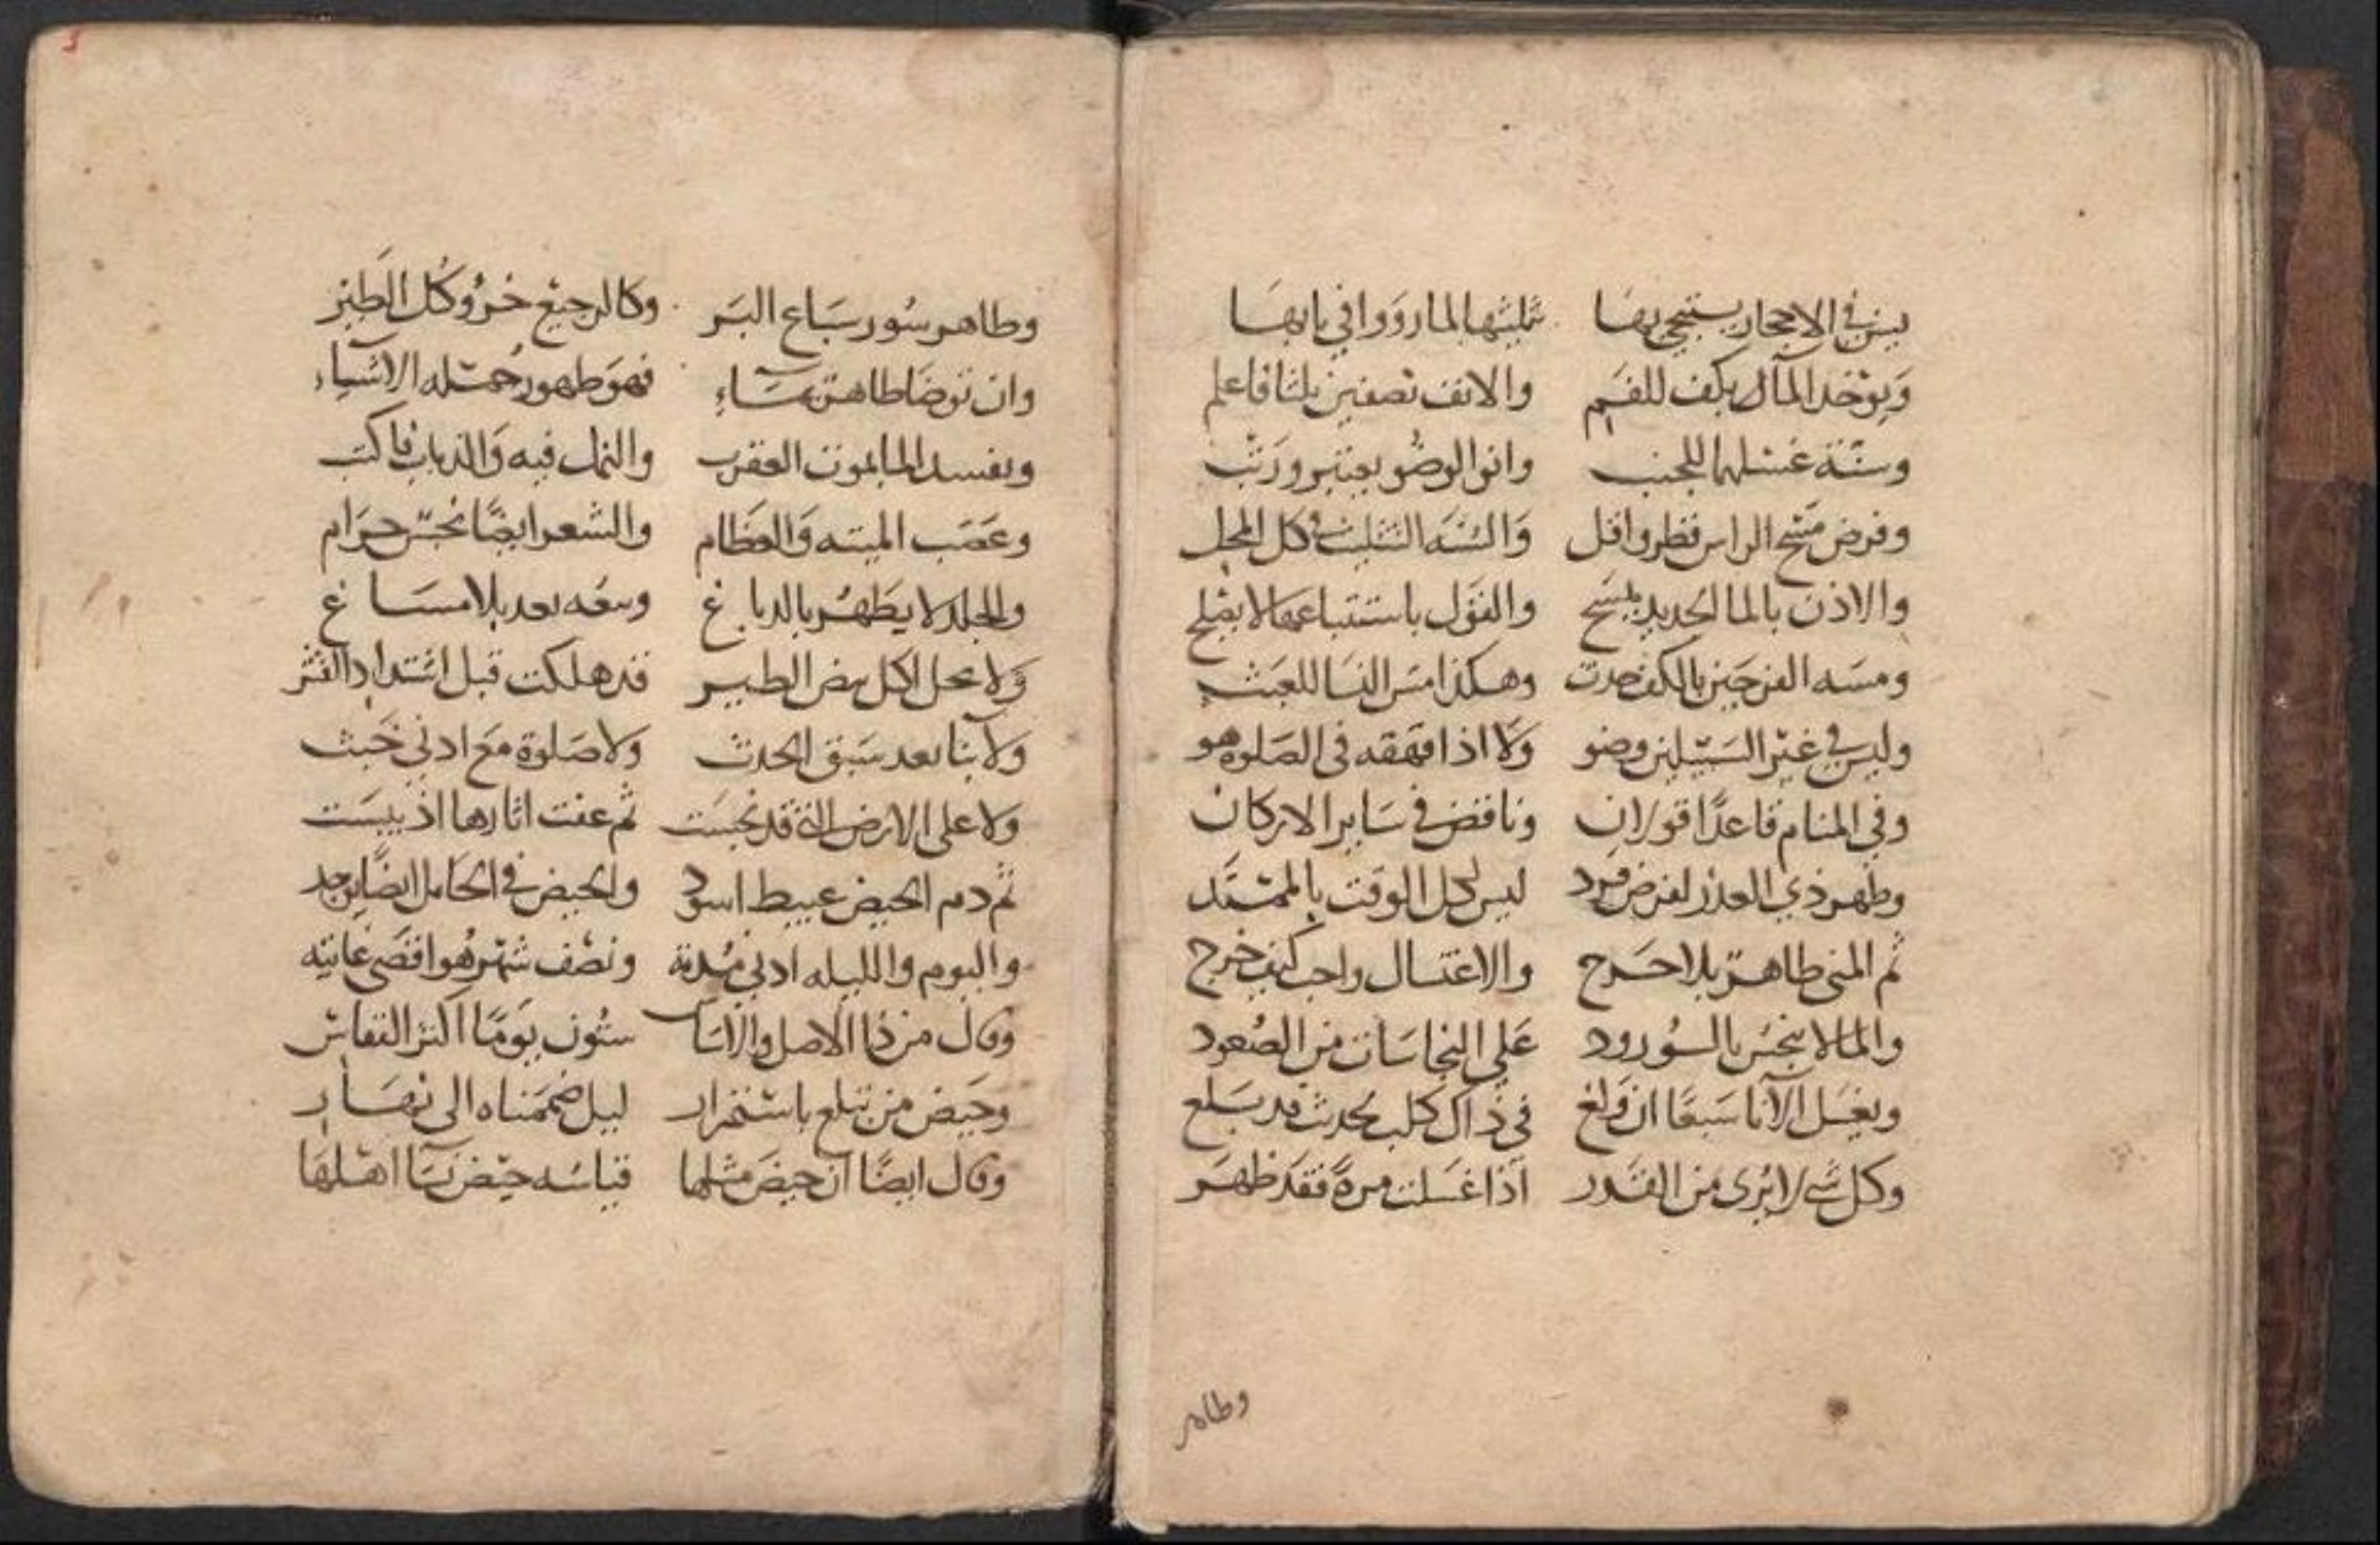 يسن في الاحجار يستنجي بها تثليثها المار ووافي بابها
ويوخذ المآ بكف للفم والانف نصفين ثلثا فاعلم
وسنة غسلهما للجنب وانو الوضو يعتبر ورتب
وفرض مسح الراس قطر واقل والسنه التثليث في كل المحل
والاذن بالما الجديد يمسح والقول باستتباعها لا يصلح
ومسه الفرجين بالكف حدث وهكذا مس النسا للعبث
وليس في غير السبيلين وضو ولا اذا قهقه في الصلوة هو
وفي المنام قاعدا قولان وناقض في ساير الاركان
وطهر ذي العذر لفرض فرد ليس لكل الوقت بالممتد
ثم المني طاهر بلا حرج والاغتسال واجب كيف خرج
والما لا ينجس بالورود على النجاسات من الصعود
ويغسل الآنا سبعا ان ولغ في ذاك كلب يحدث قد بلغ
وكل شي لا يرى من القذر اذا غسلت مرة فقد طهر
وطاهر
وطاهر سور سباع البر وكالرجيع خرؤ كل الطير
وان توضا طاهر بماء فهو طهور حمتله الاشياء
ويفسد الما بموت العقرب والنمل فيه والذباب فاكتب
وعصب الميته والعظام والشعر ايضا نجس حرام
والجلد لا يطهر بالدباغ وبيعه بعد بلا مساغ
ولا يحل اكل بيض الطير قد هلكت قبل اشتداد القشر
ولا بنا بعد سبق الحدث ولا صلوة مع ادني خبث
ولا على الارض التي قد نجست ثم عفت اثارها اذ يبست
ثم دم الحيض عبيط اسود والحيض في الحامل ايضا يوجد
واليوم والليله ادني مدته ونصف شهر هو اقصى غايته
وقال من ذا الاصل والاساس ستون يوما اكثر النفاس
وحيض من تبلع باستمرار ليل ضممناه الى نهار
وقال ايضا ان حيض مثلها قياسه حيض نسآ اهلها